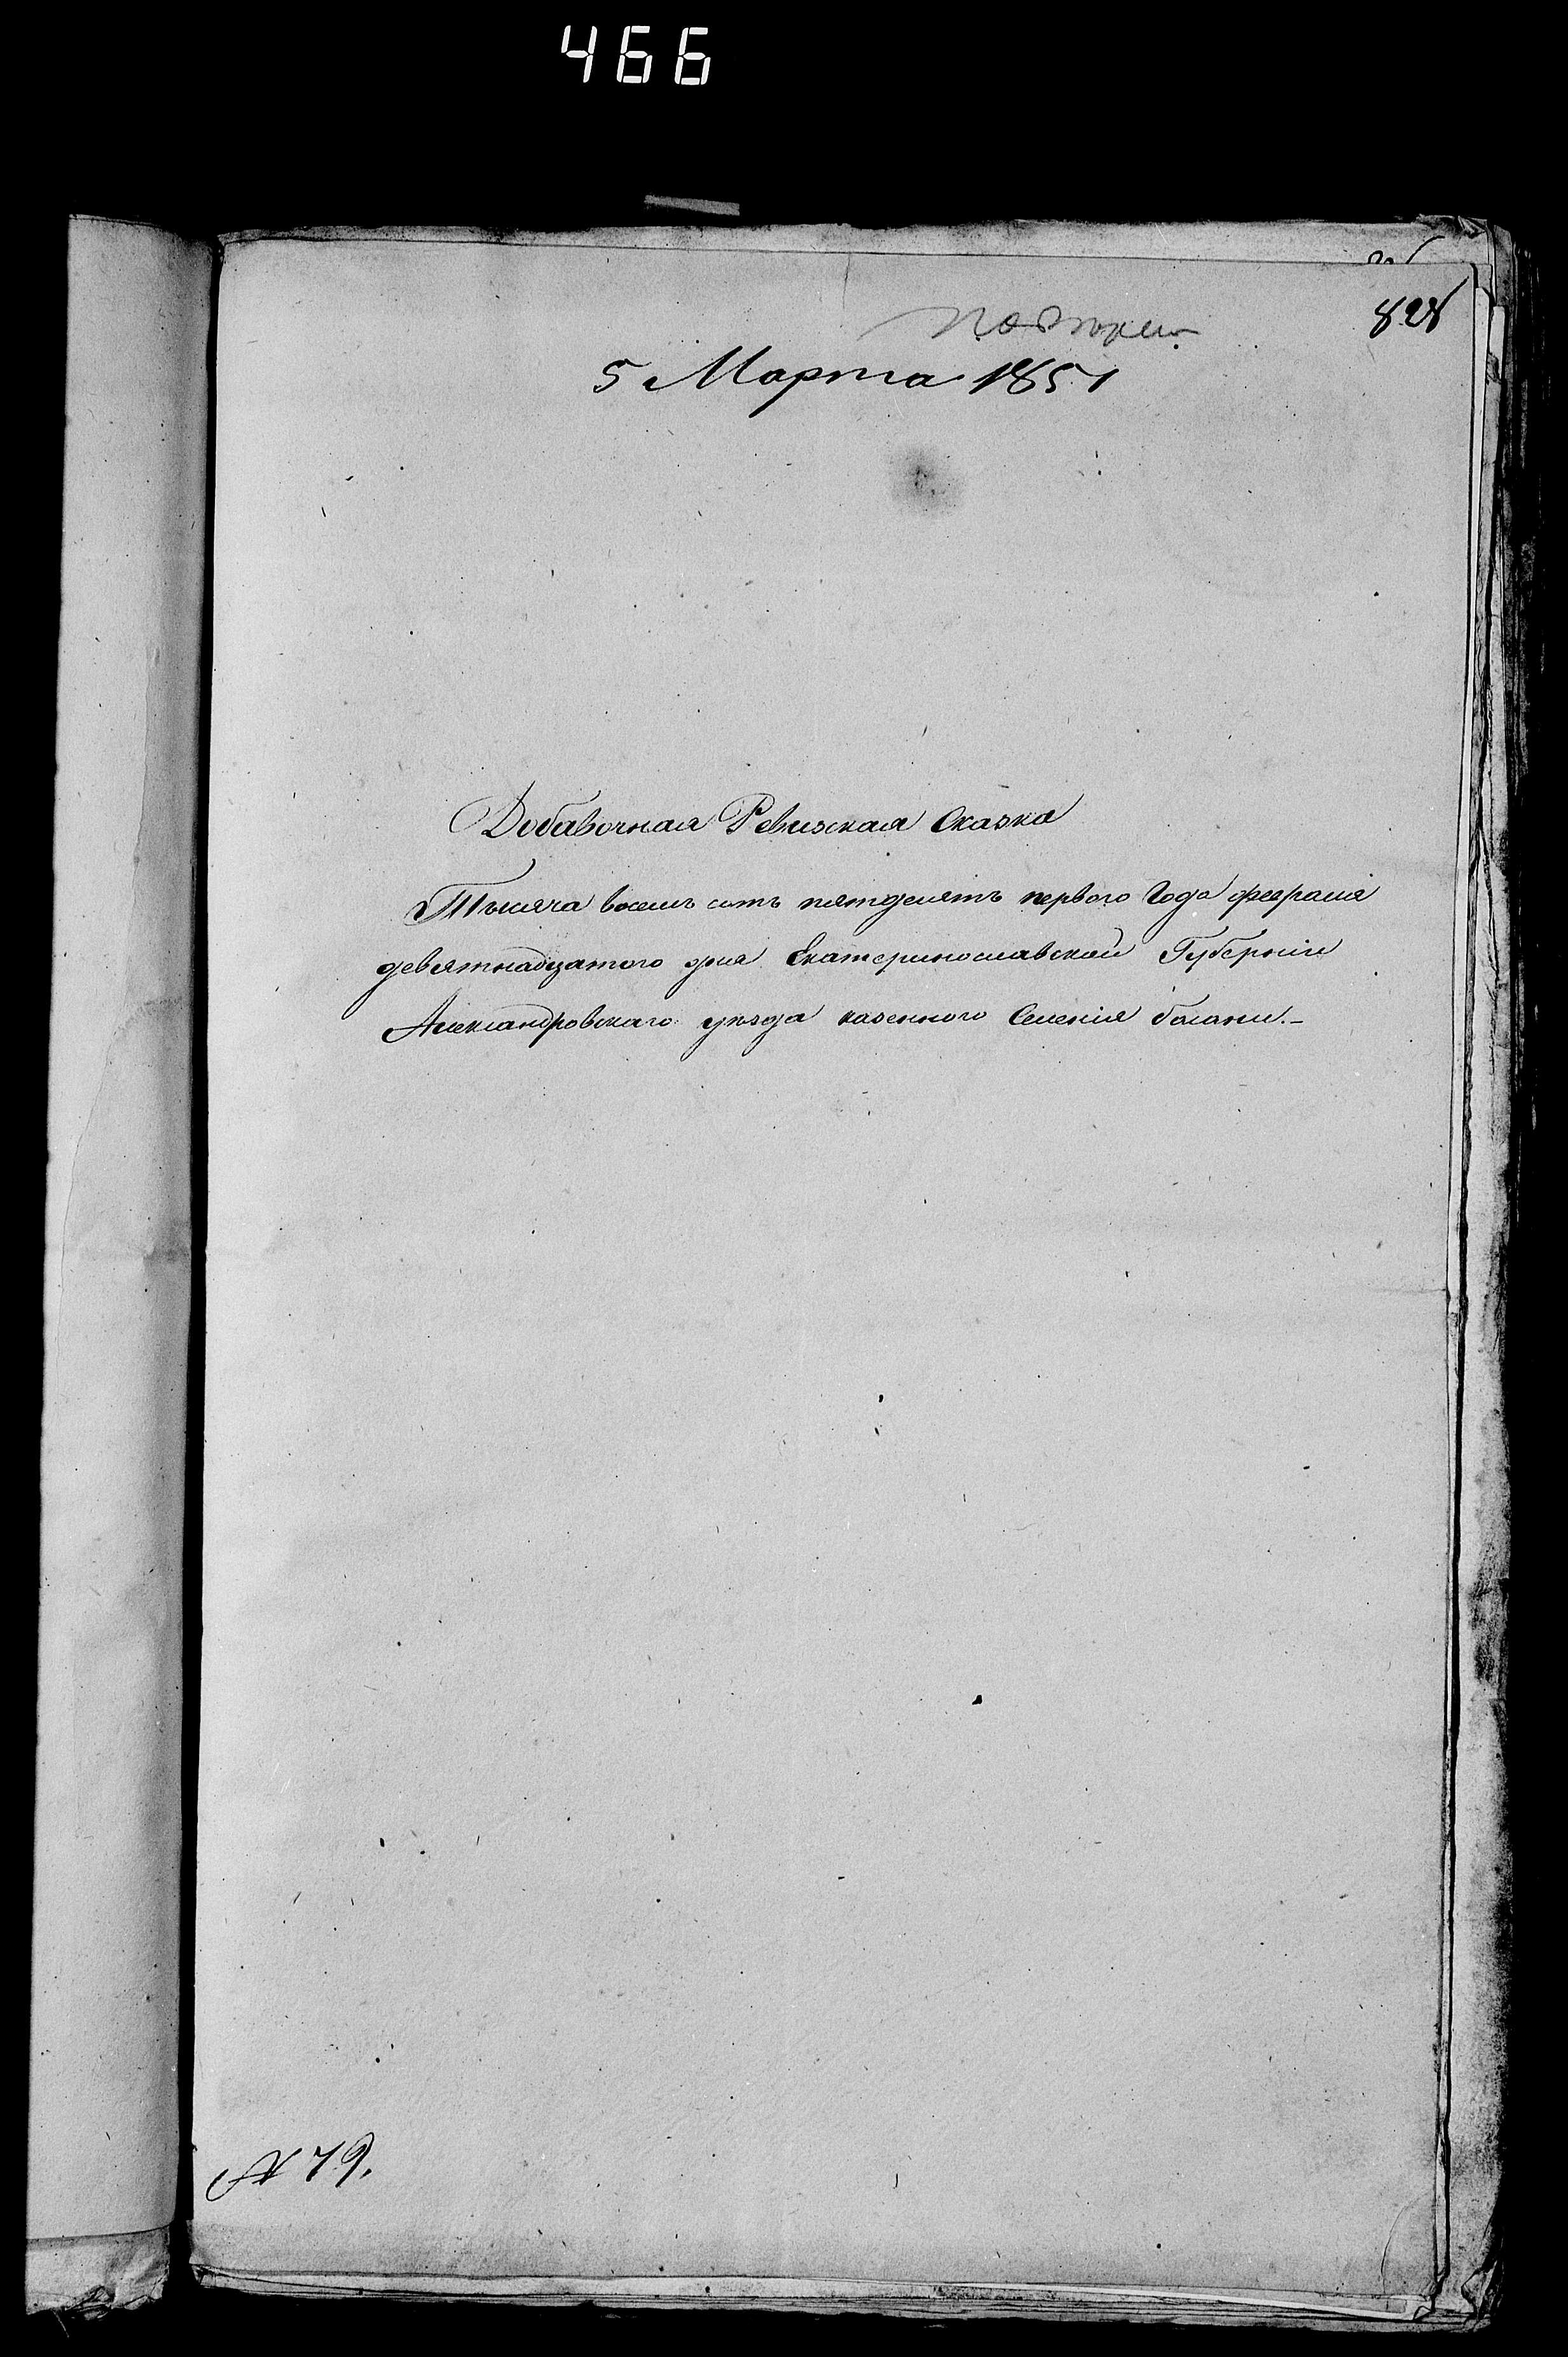 466
828
5 Марта 1851
Добавочная Ревизская Сказка
Тысяча восемь сотъ пятдесятъ первого Года февраля
девятнадцатого дня Екатеринославской Губерніи
Александровскаго уѣзда казенного Селенія балани.–
№ 79.